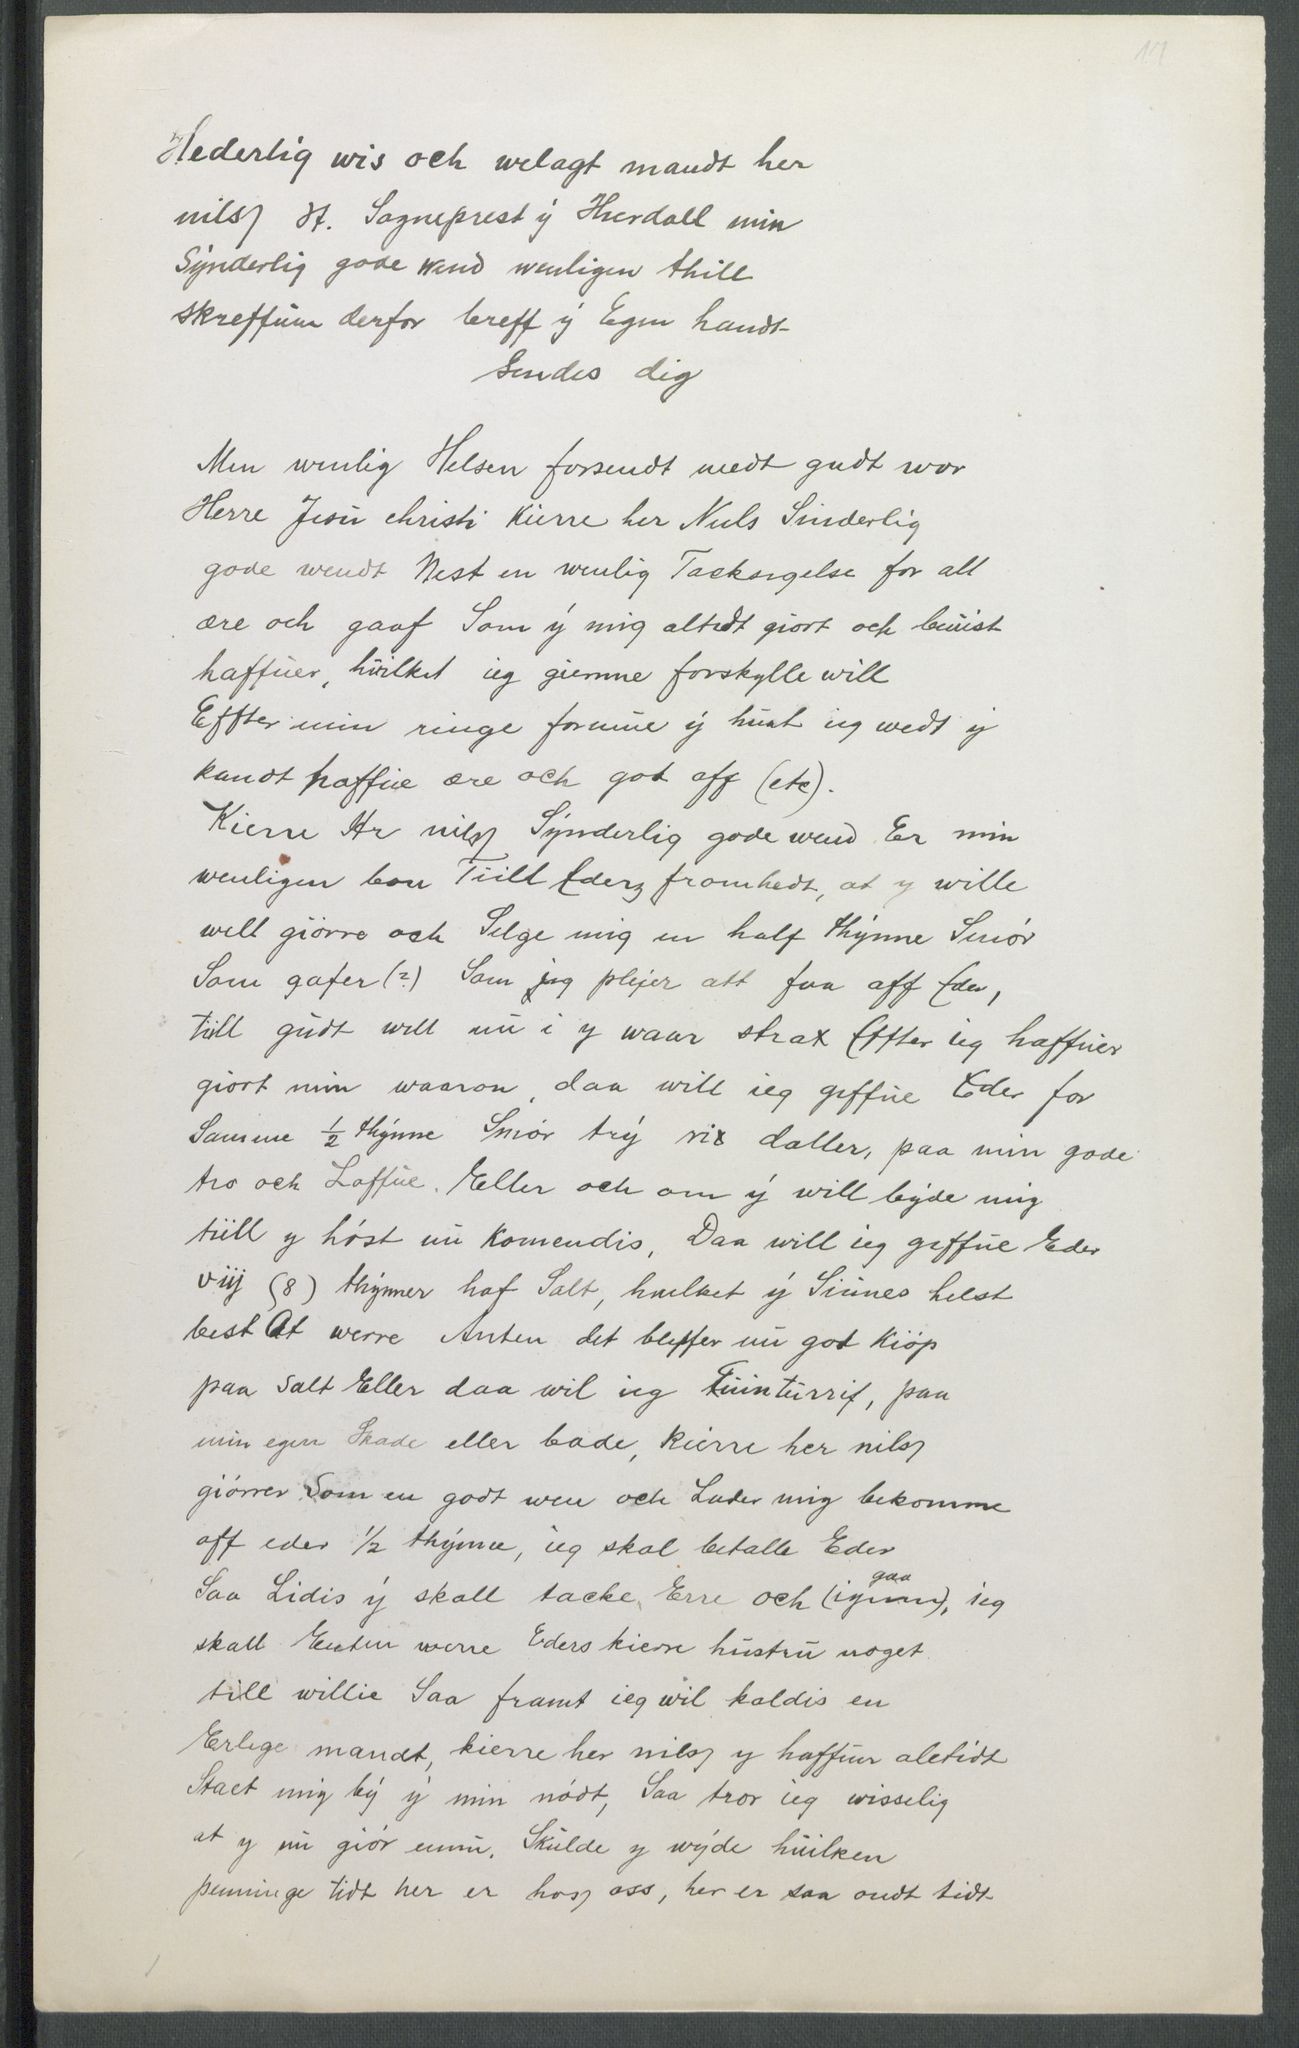 Hederlig wis och welagt mandt her
nilss H. Sogneprest ÿ Hierdall min
Sÿnderlig gode wend wenligen thill
skreffŭm derfor breff ÿ Egen handt
Sendes dig
Men wenlig Helsen forsendt medt gudt wor
Herre Jesŭ christi Kierre her Niels Sinderlig
gode wendt Nest en wenlig Tacksigelse for all
ære och gaaf Som ÿ mig altidt giort och beŭist
haffŭer, hŭilket ieg giernne forskylle will
Effter min ringe formŭe ÿ hŭat ieg wedt ÿ
kandt haffŭe ære och got aff (etc).
Kierre Hr nilss Sÿnderlig gode wend Er min
wenligen bøn Tiill Ederz fromhedt, at y wille
well giörre och Selge mig en half thÿnne Smór
Som gafer (?) Som jeg plejer att faa aff Eder,
tiill gŭdt well nŭ i y waar strax Effter ieg haffŭer
giort min waaron, daa will ieg geffŭe Eder for
Samme 1/2 thÿnne Smór trÿ rix daller, paa min gode
tro och Loffŭe. Eller och om ÿ will bÿde mig
tiill y hóst nŭ Komendis, Daa will ieg geffŭe Eder
viij (8) thÿnner haf Salt, huilket ÿ Siŭnes helst
best At werre Anten det bleffer nŭ got Kióp
paa Salt Eller daa wil ieg Eŭintŭrrif, paa
min egen Skade eller bade, Kierre her nilss
giórrer Som en godt wen och Lader mig bekomme
aff eder 1/2 thÿnne, ieg skal betalle Eder
Saa Lidis ÿ skall tacke, Erre och (igenn), ieg
gaa
skall Enten werre Eders kierre hŭstrŭ noget
till willie Saa framt ieg wil kaldis en
Erlige mandt, kierre her nilss y haffŭer aletidt
Staet mig bÿ ÿ min nódt, Saa tror ieg wisselig
at y nŭ giór ennŭ. Skŭlde y wÿde hŭilken
penninge tidt her er hoss oss, her er saa ondt tidt